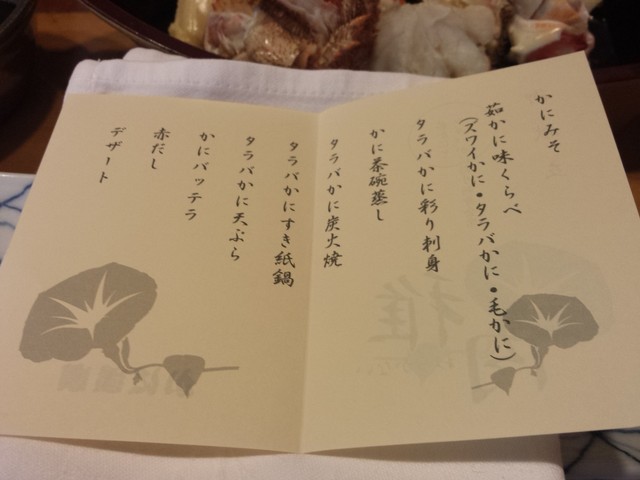 かにみそ
茹かに味くらべ
(ズワイかに・タラバかに・毛かに)
タラバかに彩り刺身
かに茶碗蒸し
タラバかに炭火焼
タラバかにすき紙鍋
タラバかに天ぷら
かにバッテラ
赤だし
デザート
雅